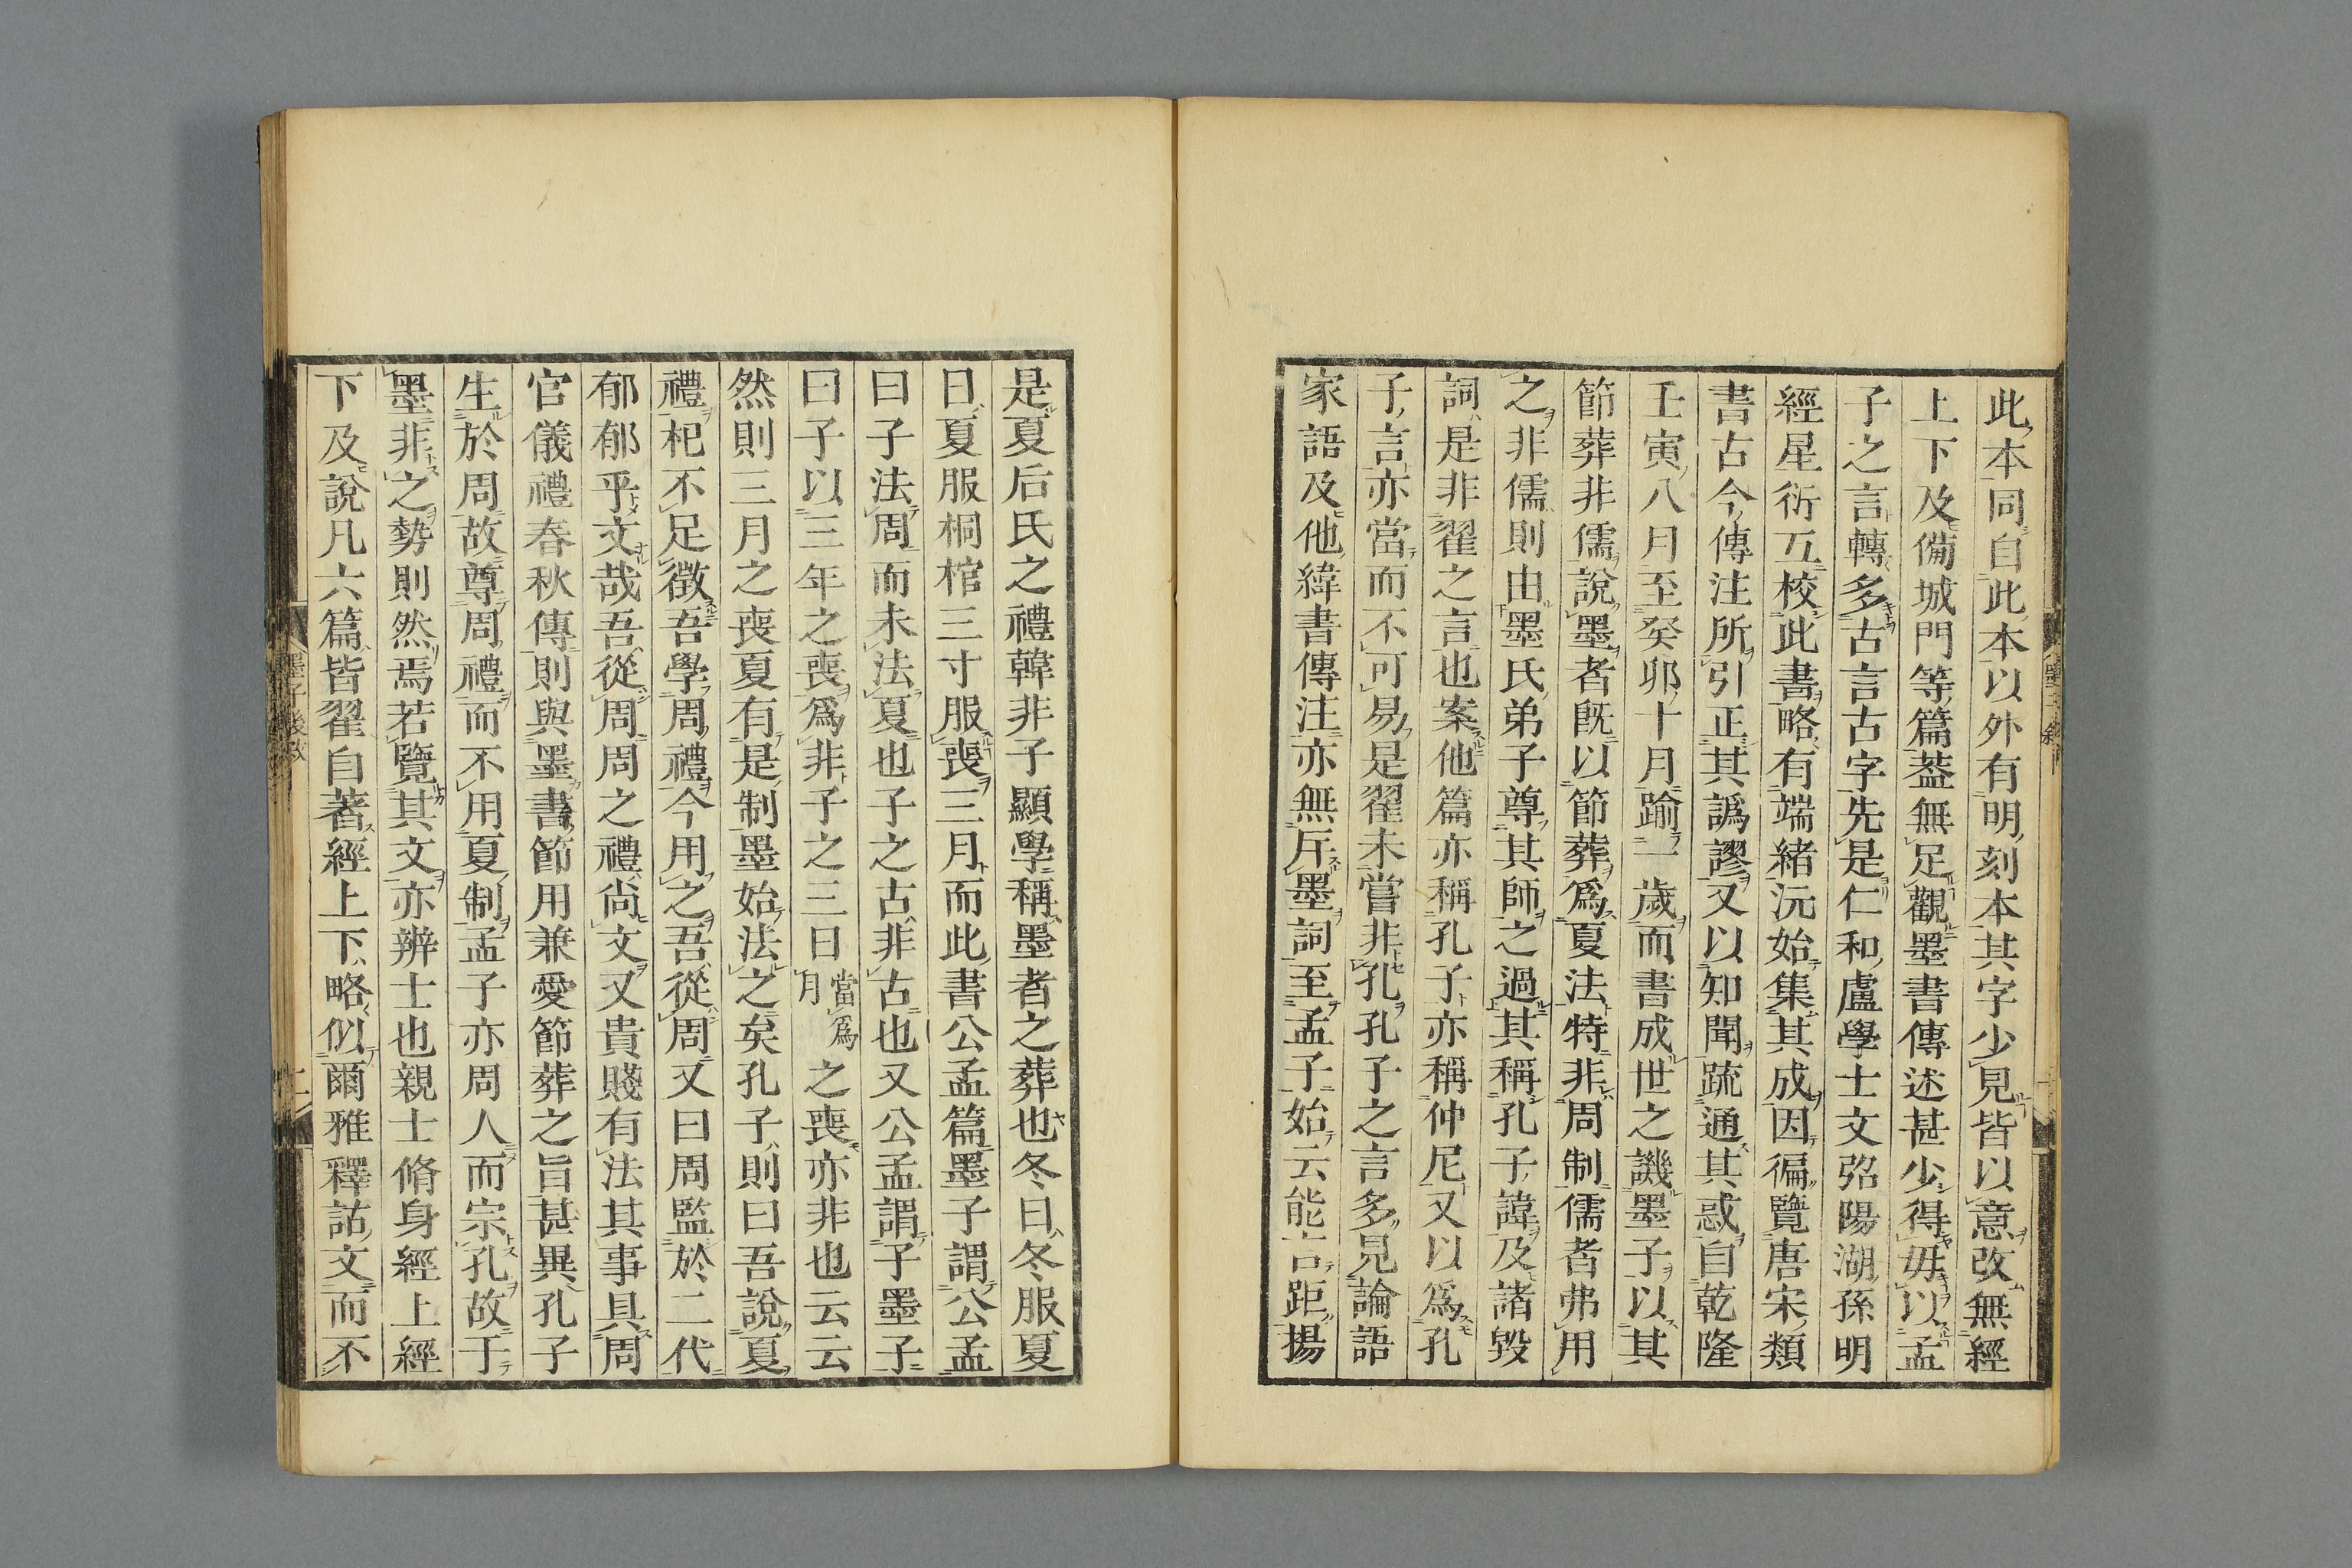 此本同自此本以外有明刻本其字少見皆以意改無經
上下及備城門等篇葢無足觀墨書傳述甚少得毋以孟
子之言轉多古言古字先是仁和盧學士文弨陽湖孫明
經星衍互校此書略有端緒沅始集其成因徧覽唐宋類
書古今傳注所引正其譌謬又以知聞疏通其惑自乾隆
壬寅八月至癸卯十月踰一歲而書成世之譏墨子以其
節葬非儒說墨者既以節葬爲夏法特非周制儒者弗用
之非儒則由墨氏弟子尊其師之過其稱孔子諱及諸毀
詞是非翟之言也案他篇亦稱孔子亦稱仲尼又以爲孔
子言亦當而不可易是翟未嘗非孔孔子之言多見論語
家語及他緯書傳注亦無斥墨詞至孟子始云能言距揚
是夏后氏之禮韓非子顯學稱墨者之葬也冬日冬服夏
日夏服桐棺三寸服喪三月而此書公孟篇墨子謂公孟
曰子法周而未法夏也子之古非古也又公孟謂子墨子
曰子以三年之喪爲非子之三日當爲月之喪亦非也云云
然則三月之喪夏有是制墨始法之矣孔子則曰吾說夏
禮杞不足徵吾學周禮今用之吾從周又曰周監於二代
郁郁乎文哉吾從周周之禮尚文又貴賤有法其事具周
官儀禮春秋傳則與墨書節用兼愛節葬之旨甚異孔子
生於周故尊周禮而不用夏制孟子亦周人而宗孔故于
墨非之勢則然焉若覽其文亦辨士也親士脩身經上經
下及說凡六篇皆翟自著經上下略似爾雅釋詁文而不
墨子後敘
二